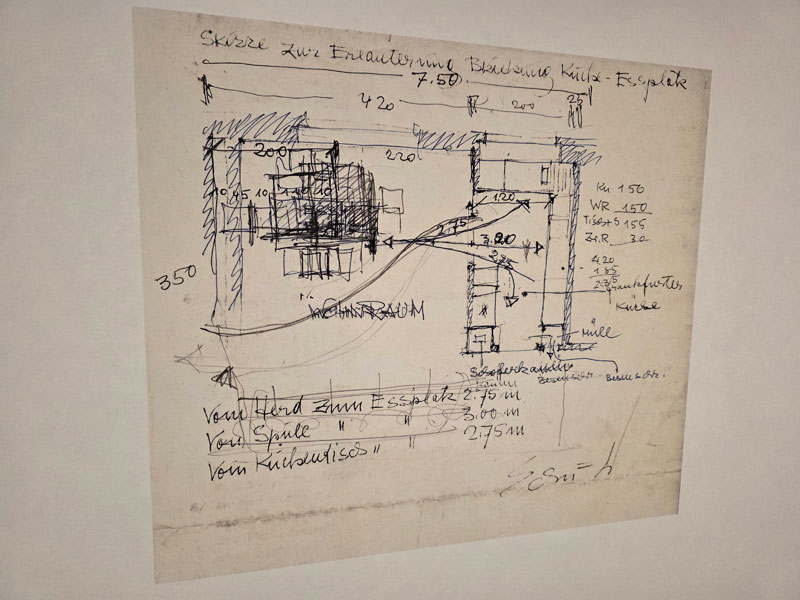 Skizze zur Erläuterung Küch - Essplatz
7.50
420
200
25
200
220
120
45 10
10
2.75
3.00
2.75
350
WOHNRAUM
Kü 150
WR 150
155
30
4.20
1.85
2.35
Frankfurter
Küche
Müll
Besenschr.
Vom Herd zum Essplatz 2.75 m
Von Spüle " " 3.00 m
Vom Küchentisch " " 2.75 m